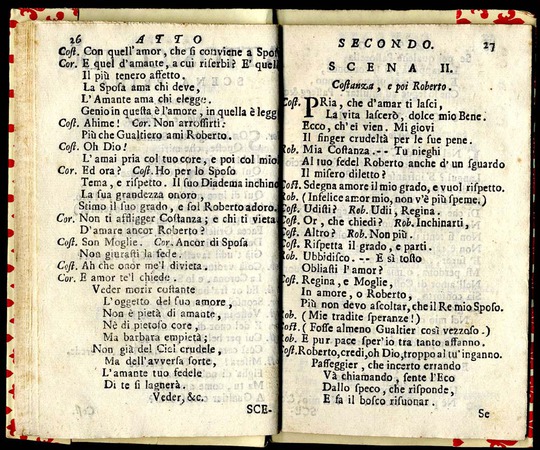 26 ATTO
Cost. Con quell'amor, che si conviene a Spos
Cor. E quel d'amante, a cui riserbi? E' quell
Il più tenero affetto.
La Sposa ama chi deve,
L'Amante ama chi elegge.
Genio in questa è l'amore, in quella è legg
Cost. Ahime! Cor. Non arrossirti.
Più che Gualtiero ami Roberto.
Cost. Oh Dio!
L'amai pria col tuo core, e poi col mio
Cor. Ed ora? Cost. Ho per lo Sposo
Tema, e rispetto. Il suo Diadema inchino
La sua grandezza onoro,
Stimo il suo grado, e sol Roberto adoro.
Cor. Non ti affligger Costanza; e chi ti vieta
D'amare ancor Roberto?
Cost. Son Moglie. Cor. Ancor di Sposa
Non giurasti la fede.
Cost. Ah che onor me'l divieta.
Cor. E amor te'l chiede.
Veder morir costante
L'oggetto del suo amore,
Non è pietà di amante,
Nè di pietoso core,
Ma barbara empietà;
Non già del Ciel crudele,
Ma dell'avversa sorte,
L'amante tuo fedele
Di te si lagnerà.
Veder, &c.
SCE-
SECONDO. 27
SCENA II.
Costanza, e poi Roberto.
Cost. PRia, che d'amar ti lasci,
La vita lascerò, dolce mio Bene.
Ecco, ch'ei vien. Mi giovi
Il finger crudeltà per le sue pene.
Rob. Mia Costanza. -- Tu nieghi
Al tuo fedel Roberto anche d'un sguardo
Il misero diletto?
Cost. Sdegna amore il mio grado, e vuol rispetto.
Rob. (Infelice amor mio, non v'è più speme.)
Cost. Udisti? Rob. Udii, Regina.
Cost. Or, che chiedi? Rob. Inchinarti,
Cost. Altro? Rob. Non più.
Cost. Rispetta il grado, e parti.
Rob. Ubbidisco. -- E sì tosto
Obliasti l'amor?
Cost. Regina, e Moglie,
In amore, o Roberto,
Più non devo ascoltar, che il Re mio Sposo.
Rob. (Mie tradite speranze!)
Cost. (Fosse almeno Gualtier così vezzoso.)
Rob. E pur pace sper'io tra tanto affanno.
Cost. Roberto, credi, oh Dio, troppo al tu'inganno.
Passeggier, che incerto errando
Và chiamando, sente l'Eco
Dallo speco, che risponde,
E fa il bosco risuonar.
Se